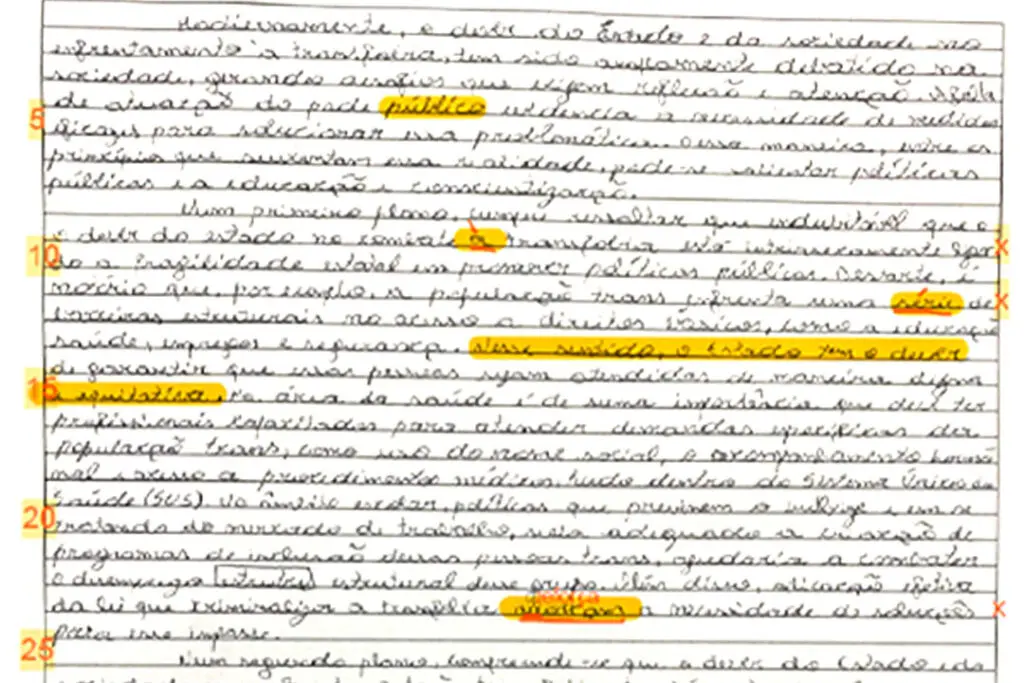 Hodiernamente, o dever do Estado e da sociedade no
enfrentamento à transfobia, tem sido amplamente debatido na
sociedade, gerando desafios que exigem reflexão e atenção. A falta
5 de atuação do poder público evidencia a necessidade de medidas
eficazes para solucionar essa problemática. Dessa maneira, entre os
princípios que sustentam essa realidade, pode-se salientar políticas
públicas e a educação e conscientização.
Num primeiro plano, cumpre ressaltar que indubitável que o
o dever do estado no combate a transfobia está intrinsecamente liga- x
10 do a fragilidade estatal em promover políticas públicas. Destarte, é
notório que, por exemplo, a população trans enfrenta uma série de x
barreiras estruturais no acesso a direitos básicos, como a educação
saúde, empregos e segurança. Nesse sentido, o Estado tem o dever
de garantir que essas pessoas sejam atendidas de maneira digna
15 e equitativa. Na área da saúde é de suma importância que deve ter
profissionais capacitados para atender demandas específicas der
população trans, como uso do nome social, o acompanhamento hormo
nal e acesso a procedimentos médicos, tudo dentro do Sistema Único de
Saúde (SUS). No âmbito escolar, políticas que previnem o e em se
20 tratando do mercado de trabalho, seria adequado a criação de
programas de inclusão dessas pessoas trans, ajudaria a combater
o desemprego estrutural desse grupo. Além disso, aplicação efetiva
da lei que criminaliza a transfobia a necessidade de soluções x
para esse impasse.
25 Num segundo plano, compreende-se que o dever do Estado e da